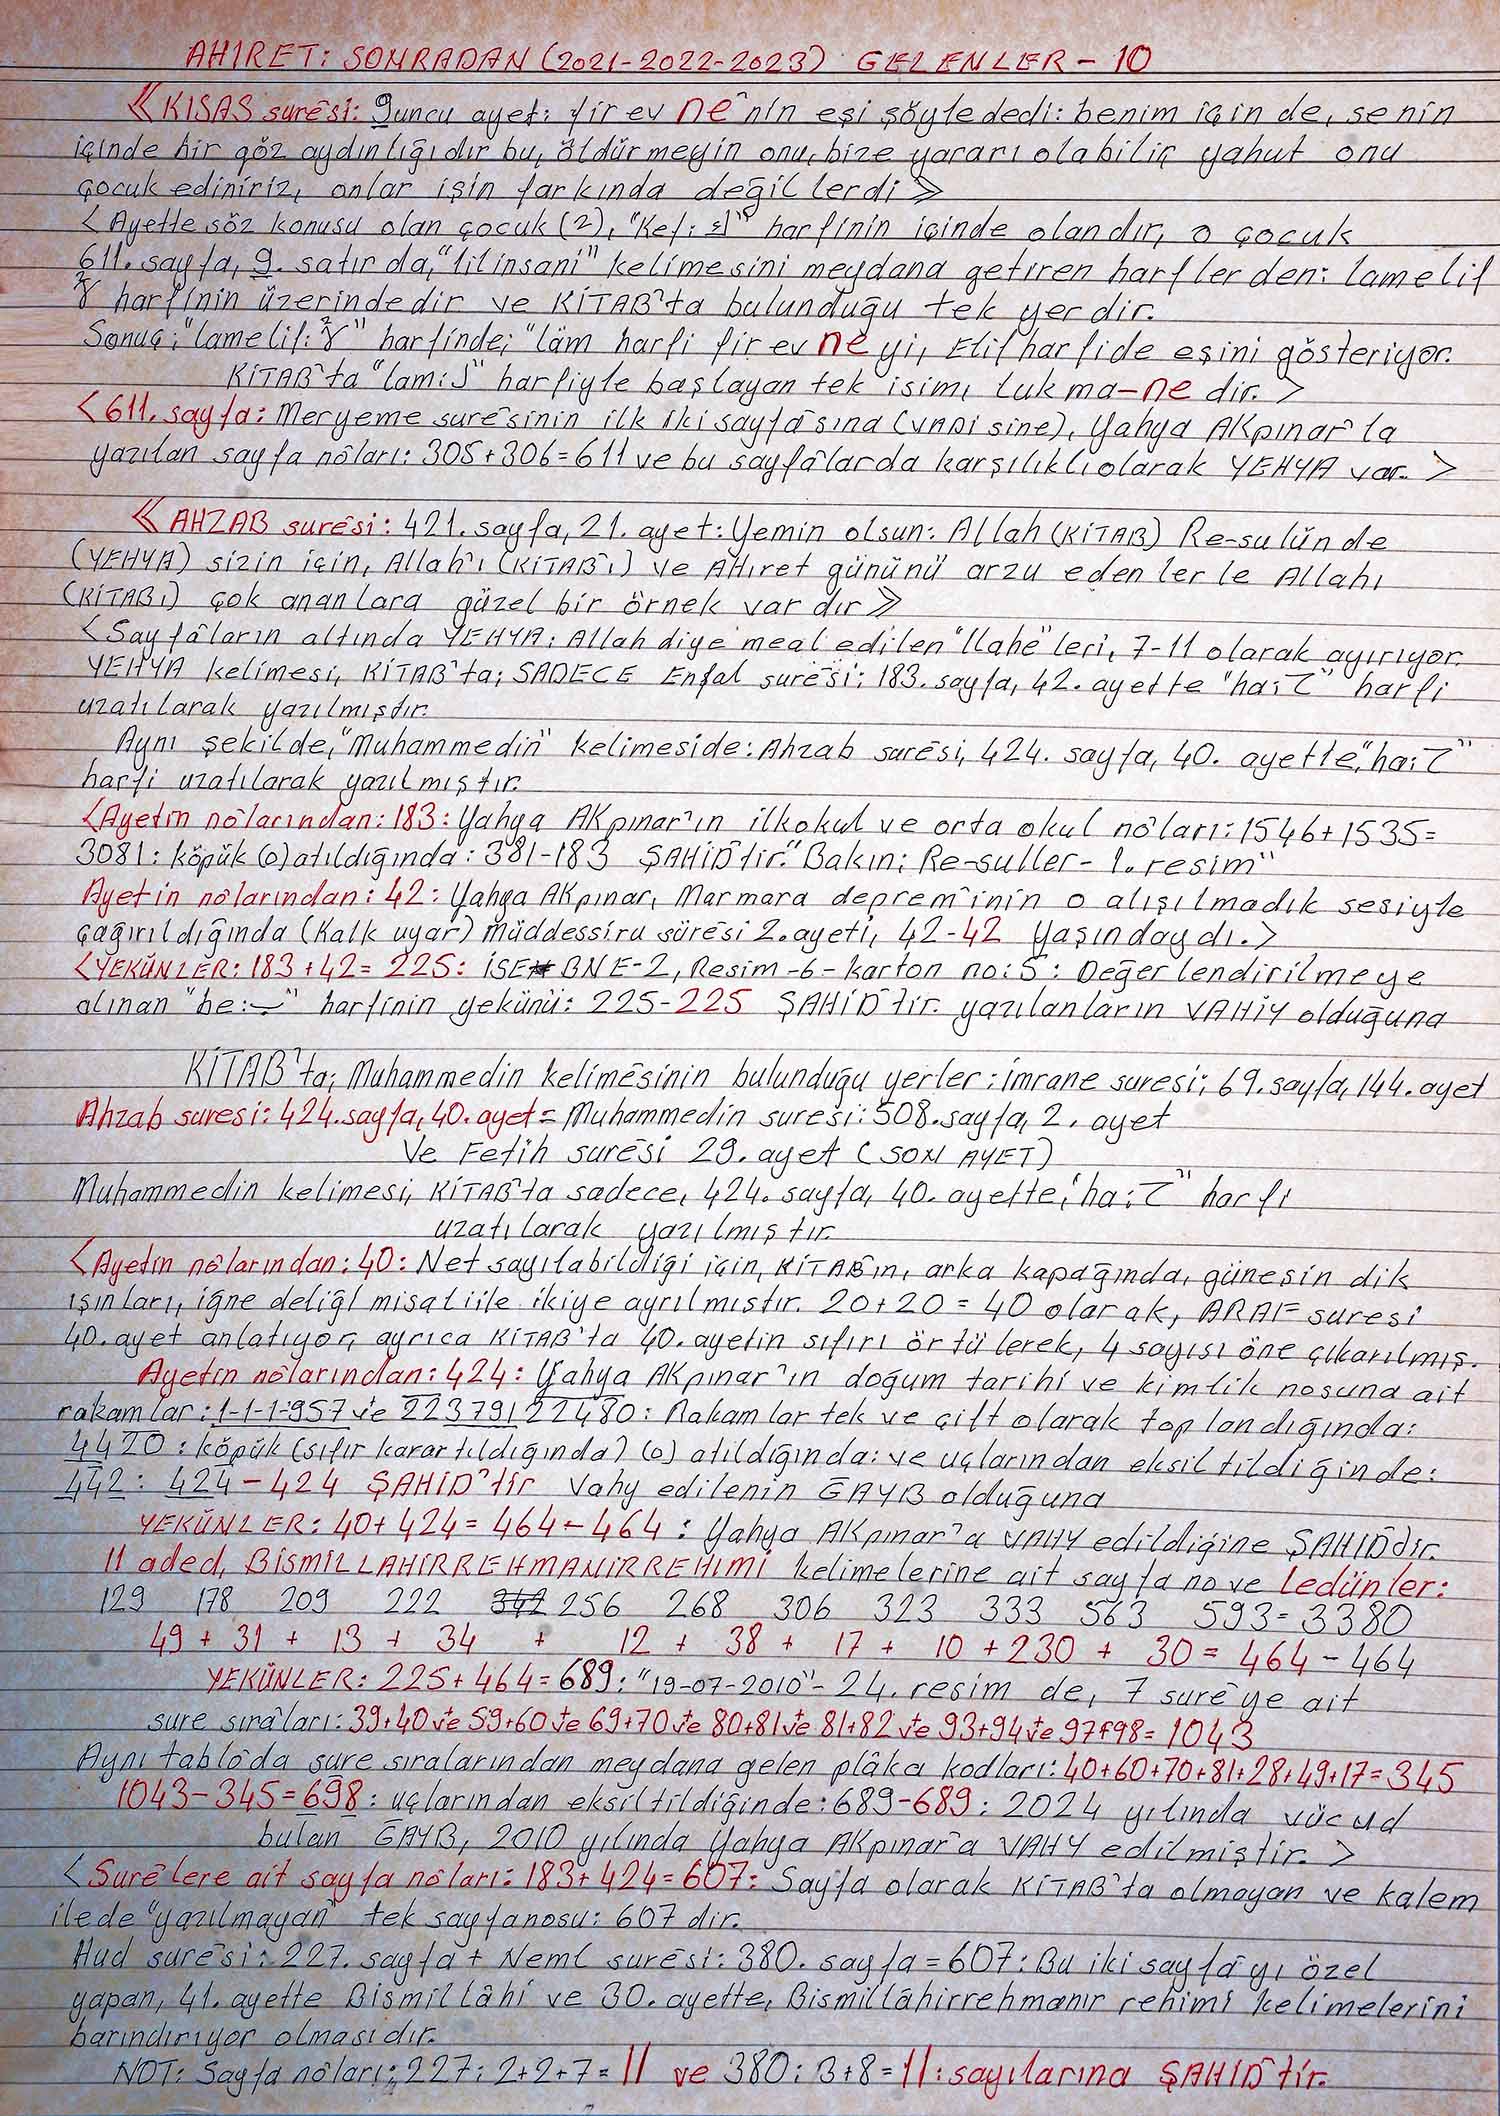 AHIRET: SONRADAN (2021-2022-2023) GELENLER - 10
《KISAS suresi: 9uncu ayet: firev ne^nin eşi şöyle dedi: benim için de, senin
içinde bir göz aydınlığıdır bu, öldürmeyin onu, bize yararı olabilir yahut onu
çocuk ediniriz, onlar işin farkında değillerdi》
<Ayette söz konusu olan çocuk (2), "Kef: ك" harfinin içinde olandır, o çocuk
611. sayfa, 9. satırda, "lilinsani" kelimesini meydana getiren harflerden: lamelif
لا harfinin üzerindedir ve KİTAB^ta bulunduğu tek yerdir.
Sonuç: "lamelif: لا" harfinde; "lâm harfi firev ne yi, Elif harfide eşini gösteriyor.
KİTAB^ta "lam: ل" harfiyle başlayan tek isim, Lukma-ne dir. >
<611. sayfa: Meryeme suresinin ilk iki sayfasına (VADİ sine), Yahya AKpınar^la
yazılan sayfa noları: 305+306=611 ve bu sayfalarda karşılıklı olarak YEHYA var. >
《AHZAB suresi: 421. sayfa, 21. ayet: Yemin olsun: Allah (KİTAB) Re-sulünde
(YEHYA) sizin için, Allah^ı (KİTAB^ı) ve AHıret gününü arzu edenlerle Allahı
(KİTABı) çok ananlara güzel bir örnek vardır》
<Sayfaların altında YEHYA: Allah diye meal edilen "Ilahe"leri, 7-11 olarak ayırıyor.
YEHYA kelimesi, KİTAB^ta; SADECE Enfal suresi; 183. sayfa, 42. ayette "ha: ح" harfi
uzatılarak yazılmıştır.
Aynı şekilde, "Muhammedin" kelimeside: Ahzab suresi, 424. sayfa, 40. ayette, "ha: ح"
harfi uzatılarak yazılmıştır.
<Ayetin nolarından: 183: Yahya AKpınar^ın ilkokul ve orta okul noları: 1546+1535=
3081: köpük (0) atıldığında: 381-183 ŞAHİD^tir. "Bakın; Re-suller-1. resim"
Ayetin nolarından: 42: Yahya AKpınar, Marmara deprem^inin o alışılmadık sesiyle
çağırıldığında (Kalk uyar) müddessiru suresi 2. ayeti, 42-42 yaşındaydı. >
<YEKÜNLER: 183+42= 225: İSE BNE-2, Resim-6-karton no: 5: Değerlendirilmeye
alınan "be: ب" harfinin yekünü: 225-225 ŞAHİD^tir. yazılanların VAHİY olduğuna
KİTAB^ta; Muhammedin kelimesinin bulunduğu yerler: İmrane suresi; 69. sayfa, 144. ayet
Ahzab suresi: 424. sayfa, 40. ayet = Muhammedin suresi: 508. sayfa, 2. ayet
Ve Fetih suresi 29. ayet (SON AYET)
Muhammedin kelimesi, KİTAB^ta sadece, 424. sayfa, 40. ayette, "ha: ح" harfi
uzatılarak yazılmıştır.
<Ayetin nolarından: 40: Net sayılabildiği için, KİTAB^ın, arka kapağında, güneşin dik
ışınları, iğne deliği misali ile ikiye ayrılmıştır. 20+20=40 olarak, ARAF suresi
40. ayet anlatıyor, ayrıca KİTAB^ta 40. ayetin sıfırı örtülerek, 4 sayısı öne çıkarılmış.
Ayetin nolarından: 424: Yahya AKpınar^ın doğum tarihi ve kimlik nosuna ait
rakamlar: 1-1-1957 ve 22379122480: Rakamlar tek ve çift olarak toplandığında:
4420: köpük (sıfır karartıldığında) (0) atıldığında: ve uçlarından eksiltildiğinde:
442: 424-424 ŞAHİD^tir Vahy edilenin GAYB olduğuna
YEKÜNLER: 40+424=464-464: Yahya AKpınar^a VAHY edildiğine ŞAHİD^dir.
11 aded, BİSMİLLAHİRREHMANİRREHIMİ kelimelerine ait sayfa no ve Ledünler:
129 178 209 222 342 256 268 306 323 333 563 593=3380
49 + 31 + 13 + 34 + 12 + 38 + 17 + 10 + 230 + 30 = 464-464
YEKÜNLER: 225+464=689: "19-07-2010"-24. resim de, 7 sureye ait
sure sıraları: 39+40 ve 59+60 ve 69+70 ve 80+81 ve 81+82 ve 93+94 ve 97+98= 1043
Aynı tabloda sure sıralarından meydana gelen plâka kodları: 40+60+70+81+28+49+17=345
1043-345=698: uçlarından eksiltildiğinde: 689-689: 2024 yılında vücud
bulan GAYB, 2010 yılında Yahya AKpınar^a VAHY edilmiştir. >
<Surelere ait sayfa noları: 183+424=607: Sayfa olarak KİTAB^ta olmayan ve kalem
ilede "yazılmayan" tek sayfanosu: 607 dir.
Hud suresi: 227. sayfa + Neml suresi: 380. sayfa = 607: Bu iki sayfayı özel
yapan, 41. ayette Bismillâhi ve 30. ayette, Bismillâhirrehmanır rehimi kelimelerini
barındırıyor olmasıdır.
NOT: Sayfa noları; 227: 2+2+7= 11 ve 380: 3+8=11: sayılarına ŞAHİD^tir.